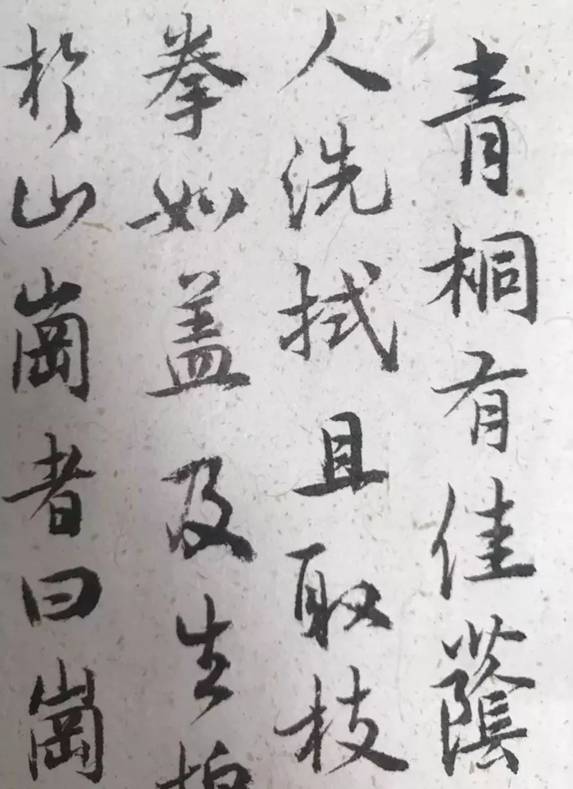 青桐有佳蔭
人洗拭且取枝
拳如盖及生
於山崗者曰崗